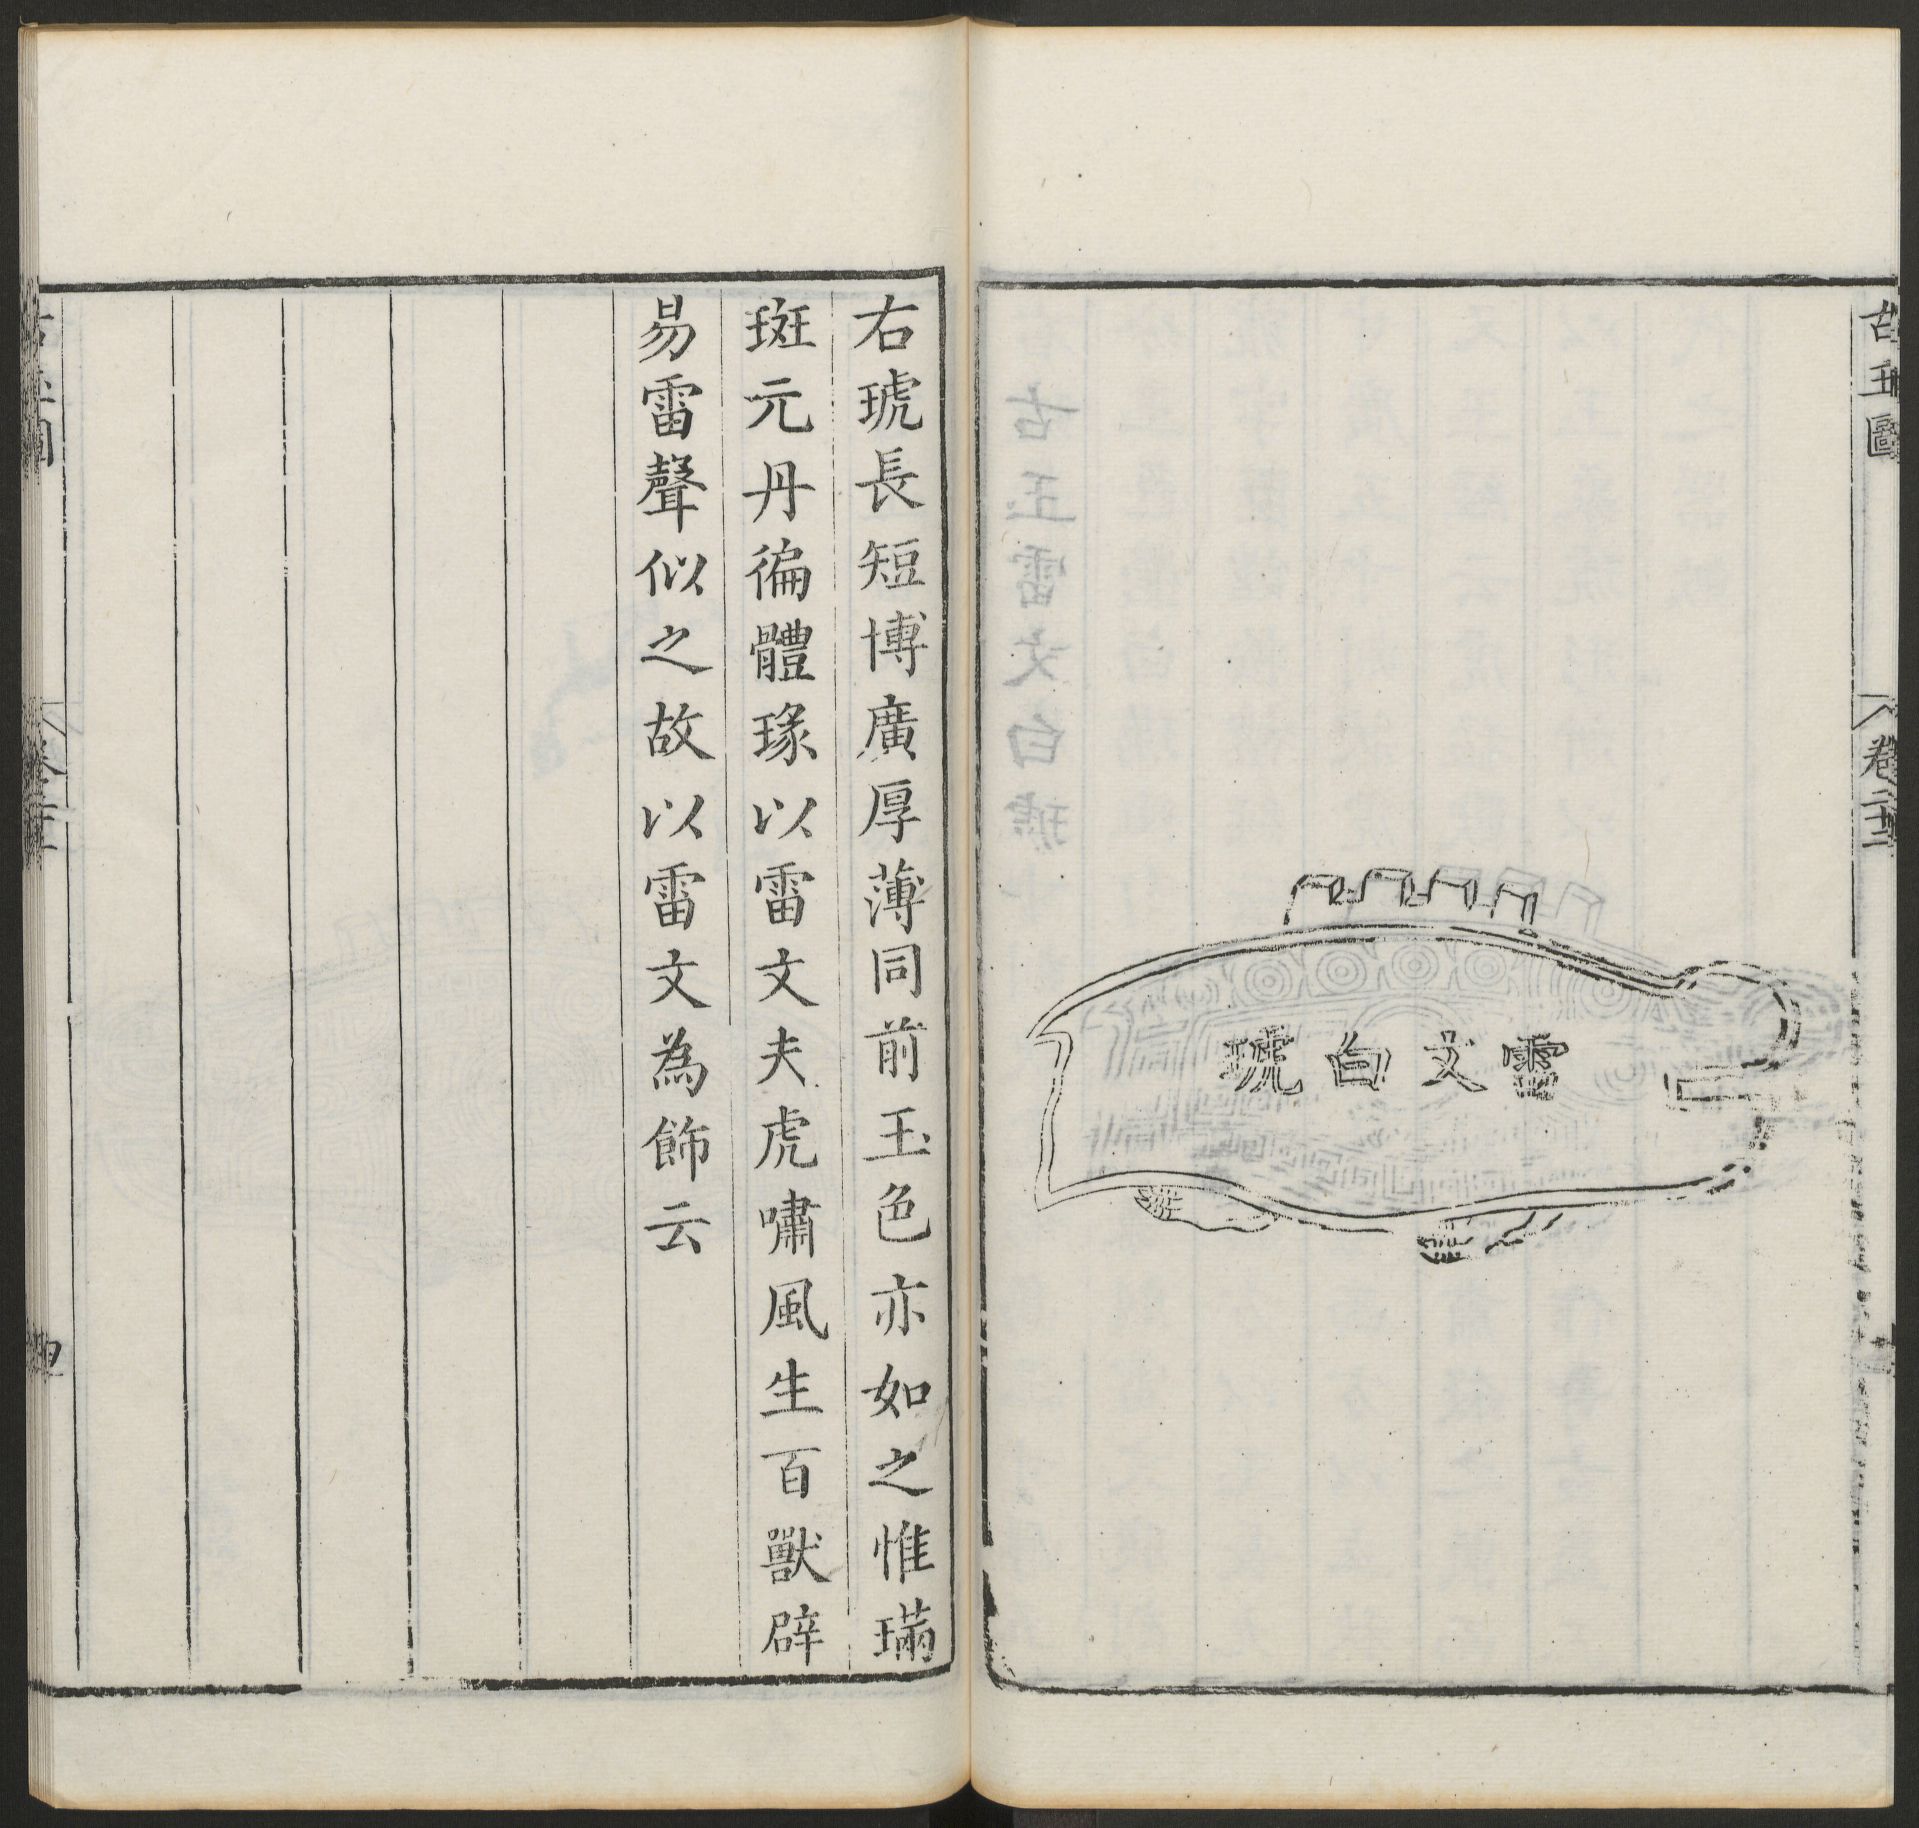 古玉圖
卷二十三
雷文白琥
右琥長短博廣厚薄同前玉色亦如之惟璊
斑元丹徧體瑑以雷文夫虎嘯風生百獸辟
易雷聲似之故以雷文為飾云